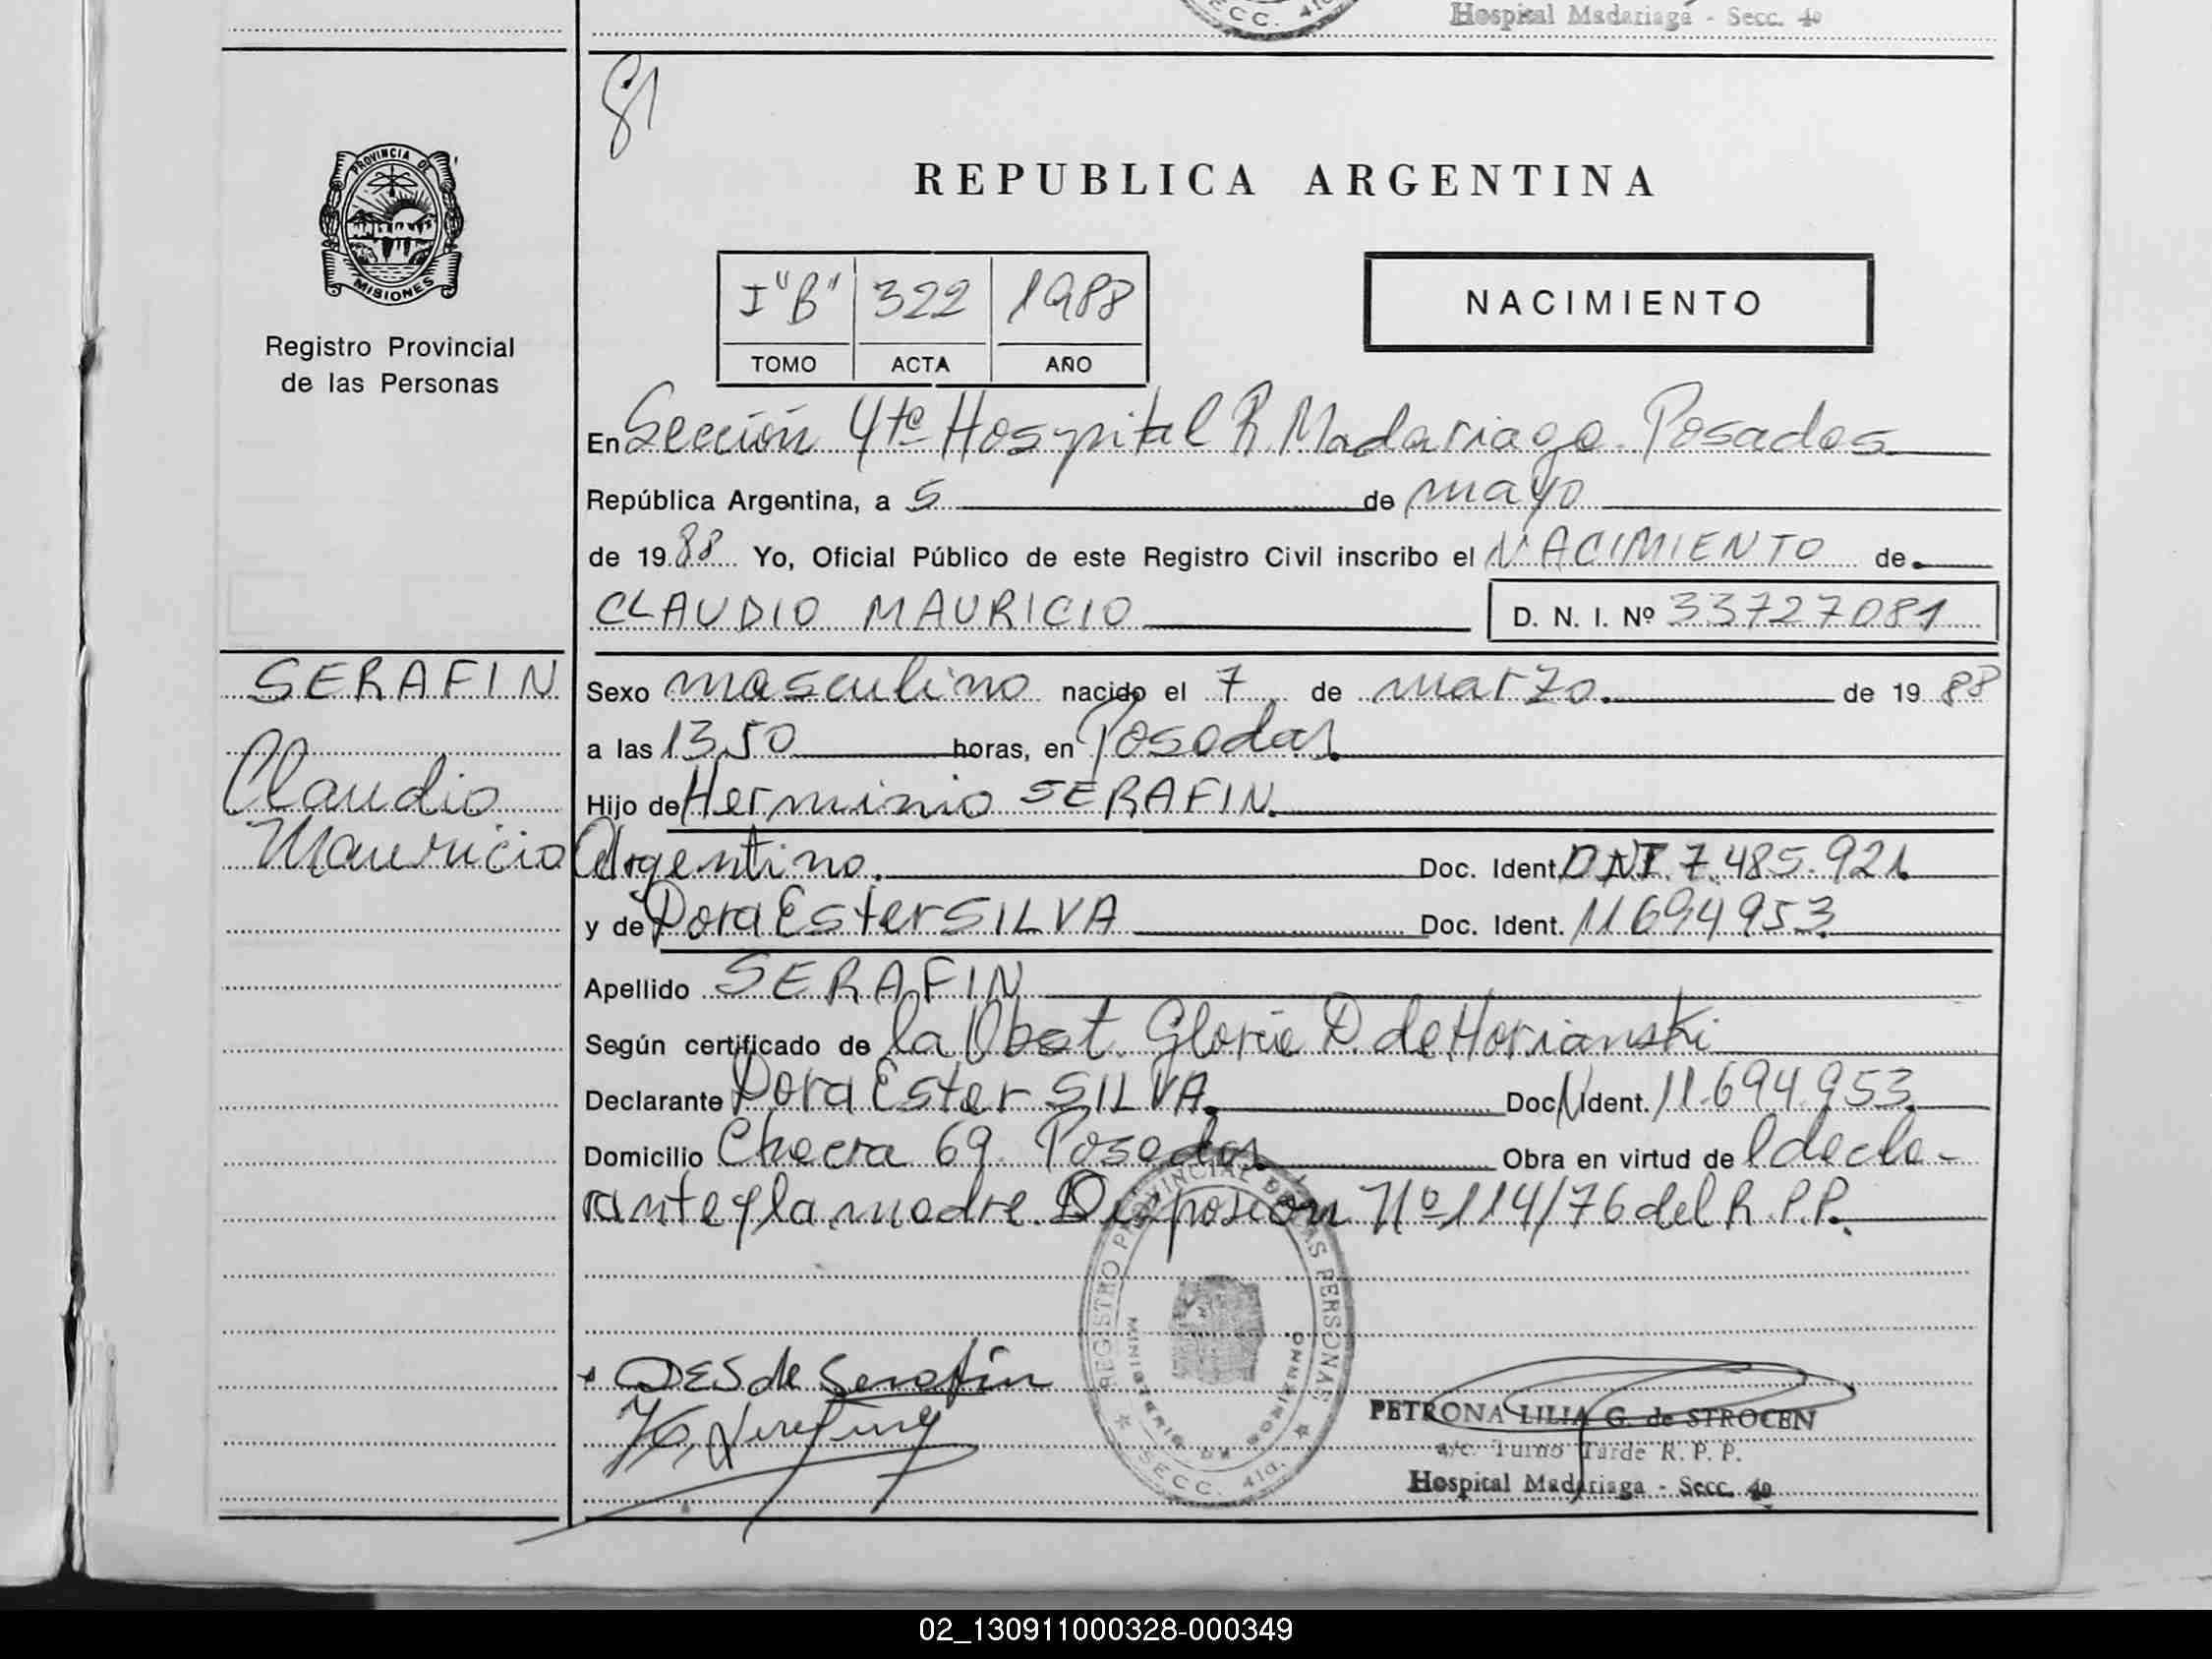 SECC. 4ta.
Hospital Madariaga - Secc. 4a
81
PROVINCIA DE
MISIONES
Registro Provincial
de las Personas
REPUBLICA ARGENTINA
I"B" 322 1988
TOMO ACTA AÑO
NACIMIENTO
En Sección 4ta Hospital R. Madariaga. Posadas
República Argentina, a 5 de mayo
de 1988 Yo, Oficial Público de este Registro Civil inscribo el NACIMIENTO de
CLAUDIO MAURICIO D. N. I. Nº 33727081
SERAFIN
Claudio
Mauricio
Sexo masculino nacido el 7 de marzo. de 1988
a las 13,50 horas, en Posadas.
Hijo de Herminio SERAFIN.
Argentino. Doc. Ident. DNI. 7.485.921.
y de Dora Ester SILVA Doc. Ident. 11694953.
Apellido SERAFIN
Según certificado de la Obst. Gloria D. de Horianski
Declarante Dora Ester SILVA. Doc. Ident. 11.694.953.
Domicilio Chacra 69. Posadas. Obra en virtud de l decla-
rante y la madre. Nº 114/76 del R.P.P.
REGISTRO PROVINCIAL DE LAS PERSONAS
MINISTERIO DE GOBIERNO
SECC. 4ta.
DES de Serafin
PETRONA LILIA G. de STROCEN
a/c. Turno Tarde R. P. P.
Hospital Madariaga - Secc. 4a
02_130911000328-000349